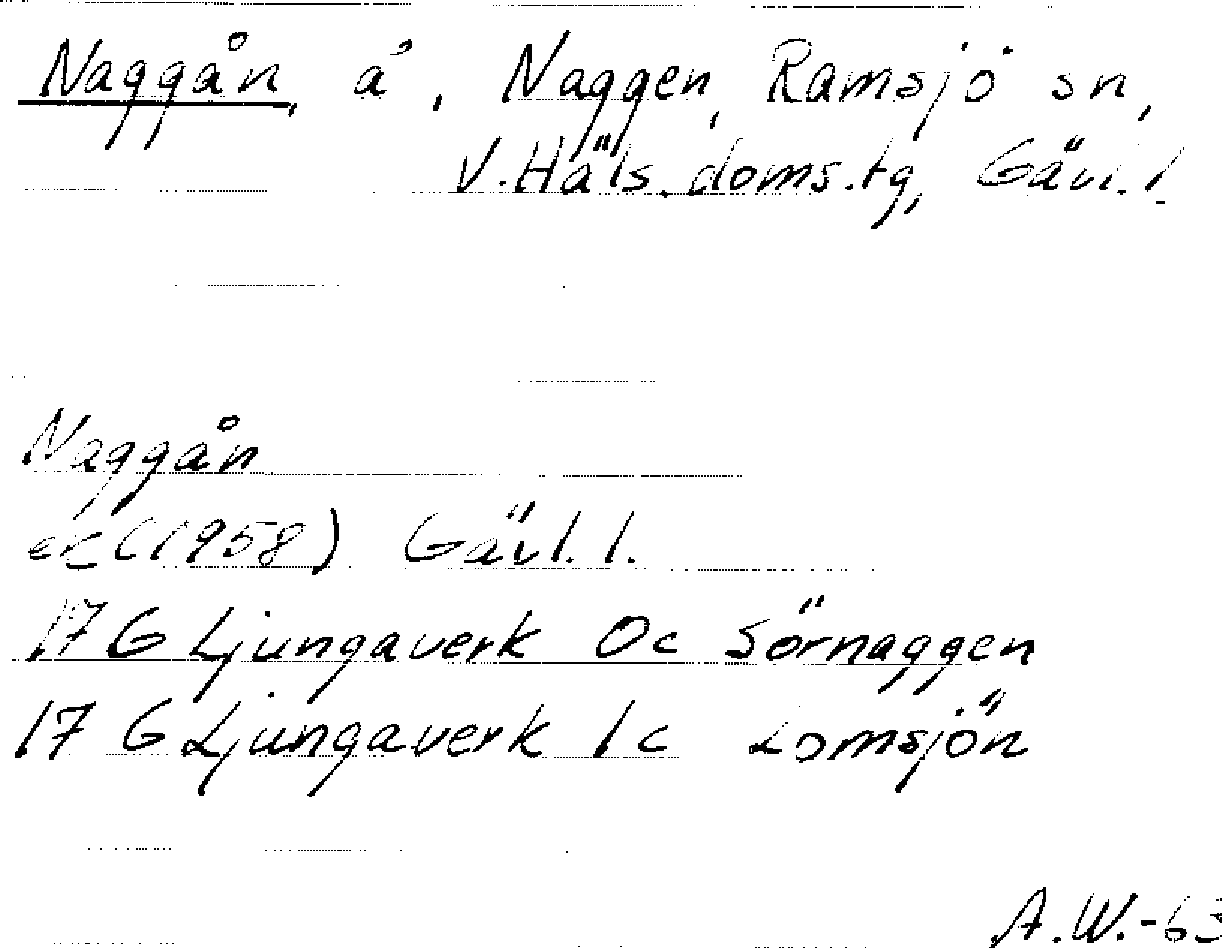 Naggån, å, Naggen, Ramsjö sn,
V. Häls. doms.tg, Gävl. l.
Naggån
ek (1958) Gävl. l.
17 G Ljungaverk 0c Sörnaggen
17 G Ljungaverk 1c Lomsjön
A.W.-63